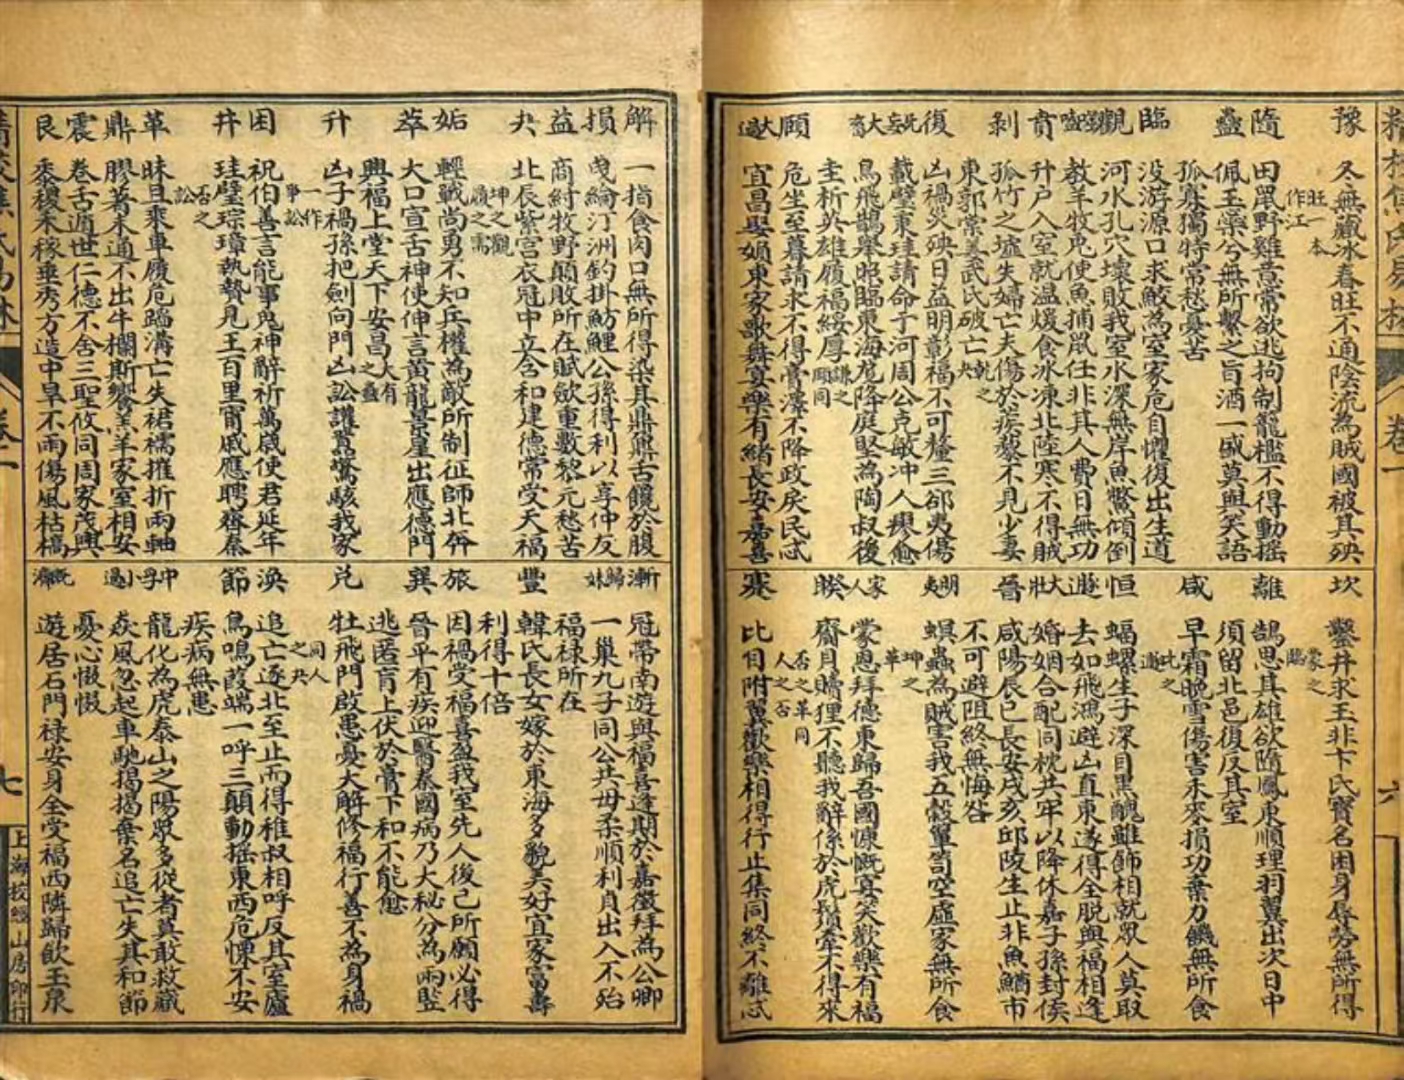 精校焦氏易林
卷一
六
豫
冬無藏冰春旺不通陰流為賊國被其殃
旺一本作江
隨
田鼠野雞意常欲逃拘制籠檻不得動搖
蠱
佩玉蘂兮無所繫之旨酒一盛莫與笑語
孤寡獨特常愁憂苦
臨
沒游源口求鮫為室家危自懼復出生道
觀
河水孔穴壞敗我室水深無岸魚驚傾倒
噬嗑
教羊牧兎使魚捕鼠任非其人費日無功
賁
升户入室就温煖食冰凍北陸寒不得賊
剝
孤竹之墟失婦亡夫傷於蒺藜不見少妻
東郭棠姜武氏破亡
乾之夬
復
凶禍災殃日益明彰福不可釐三郤夷傷
无妄
戴璧秉珪請命于河周公克敏冲人瘳愈
大畜
鳥飛鵲舉照臨東海尨降庭堅為陶叔後
圭析英雄履福綏厚
謙之頤同
頤
危坐至暮請求不得膏澤不降政戾民忒
大過
宜昌娶婦東家歌舞宴樂有緒長安嘉喜
坎
鑿井求玉非卞氏寶名困身辱勞無所得
蒙之臨
離
鵠思其雄欲隨鳳東順理羽翼出次日中
須留北邑復反其室
咸
早霜晚雪傷害禾麥損功棄力饑無所食
恒
蝸螺生子深目黑醜雖飾相就眾人莫取
比之遯
遯
去如飛鴻避凶直東遂得全脱與福相逢
壯
婚姻合配同枕共牢以降休嘉子孫封侯
晉
咸陽辰巳長安戌亥邱陵生止非魚鰌市
不可避阻終無悔咎
明夷
螟蟲為賊害我五穀簞笥空虛家無所食
坤之革
家人
蒙恩拜德東歸吾國慷慨宴笑歡樂有福
睽
齎貝贖狸不聽我辭係於虎鬚牽不得來
否之革同人之否
蹇
比目附翼歡樂相得行止集同終不離忒
解
一指食肉口無所得染其鼎鼐舌饞於腹
損
曳綸汀洲釣掛魴鯉公孫得利以享仲友
益
商紂牧野顛敗所在賦歛重數黎元愁苦
夬
北辰紫宫衣冠中立含和建德常受天福
坤之觀履之需
姤
輕戰尚勇不知兵權為敵所制征師北奔
萃
大口宣舌神使伸言黄龍景星出應德門
興福上堂天下安昌
大有之蠱
升
凶子禍孫把劍向門凶訟讙囂驚駭我家
一作爭訟
困
祝伯善言能事鬼神辭祈萬歲使君延年
井
珪璧琮璋執贄見王百里甯戚應聘齊秦
否之訟
革
昧旦乘車履危蹈溝亡失裙襦摧折兩軸
鼎
膠著木通不出牛欄斯饗羔羊家室相安
震
卷舌遁世仁德不舍三聖攸同周家茂興
艮
黍稷禾稼垂秀方造中旱不雨傷風枯槁
漸
冠帶南遊與福喜逢期於嘉徵拜為公卿
歸妹
一巢九子同公共母柔順利貞出入不殆
福祿所在
豐
韓氏長女嫁於東海多貌美好宜家富壽
利得十倍
旅
因禍受福喜盈我室先人後己所願必得
巽
晉平有疾迎醫秦國病乃大秘分為兩竪
逃匿肓上伏於膏下和不能愈
兌
牡飛門啟患憂大解修福行善不為身禍
同人之夬
渙
追亡逐北至止而得稚叔相呼反其室廬
節
鳥鳴葭端一呼三顛動摇東西危慄不安
疾病無患
中孚
龍化為虎泰山之陽眾多從者莫敢救藏
小過
焱風忽起車馳揭揭棄名追亡失其和節
憂心惙惙
既濟
遊居石門祿安身全受福西隣歸飲玉泉
精校焦氏易林
卷一
七
上海校經山房印行